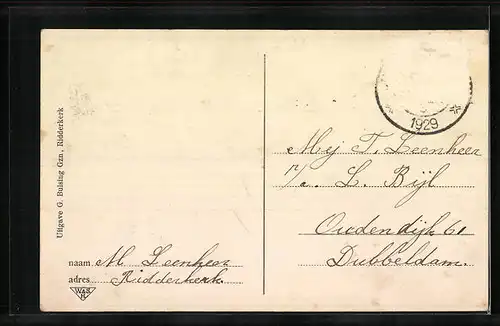 Uitgave G. Buising Gzn., Ridderkerk
1929
Mej T. Leenheer
p/a. L. Bijl
Oudendijk 61
Dubbeldam.
naam M Leenheer
adres Ridderkerk
W&S
R